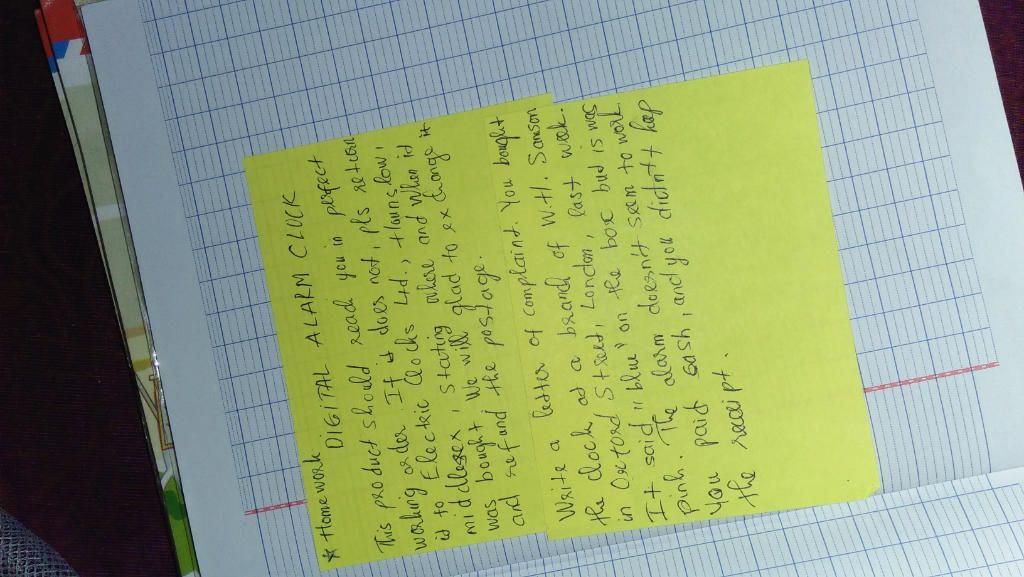 * Homework
DIGITAL ALARM CLOCK
This product should reach you in perfect
working order. If it does not, pls return
it to Electric Clocks Ltd., Hounslow,
middlesex, stating where and when it
was bought. We will glad to exchange it
and refund the postage.
Write a letter of complaint. You bought
the clock at a branch of W.H. Samson
in Oxford Street, London, last week.
It said "blue" on the box but is was
pink. The alarm doesn't seem to work
You paid cash, and you didn't keep
the receipt.